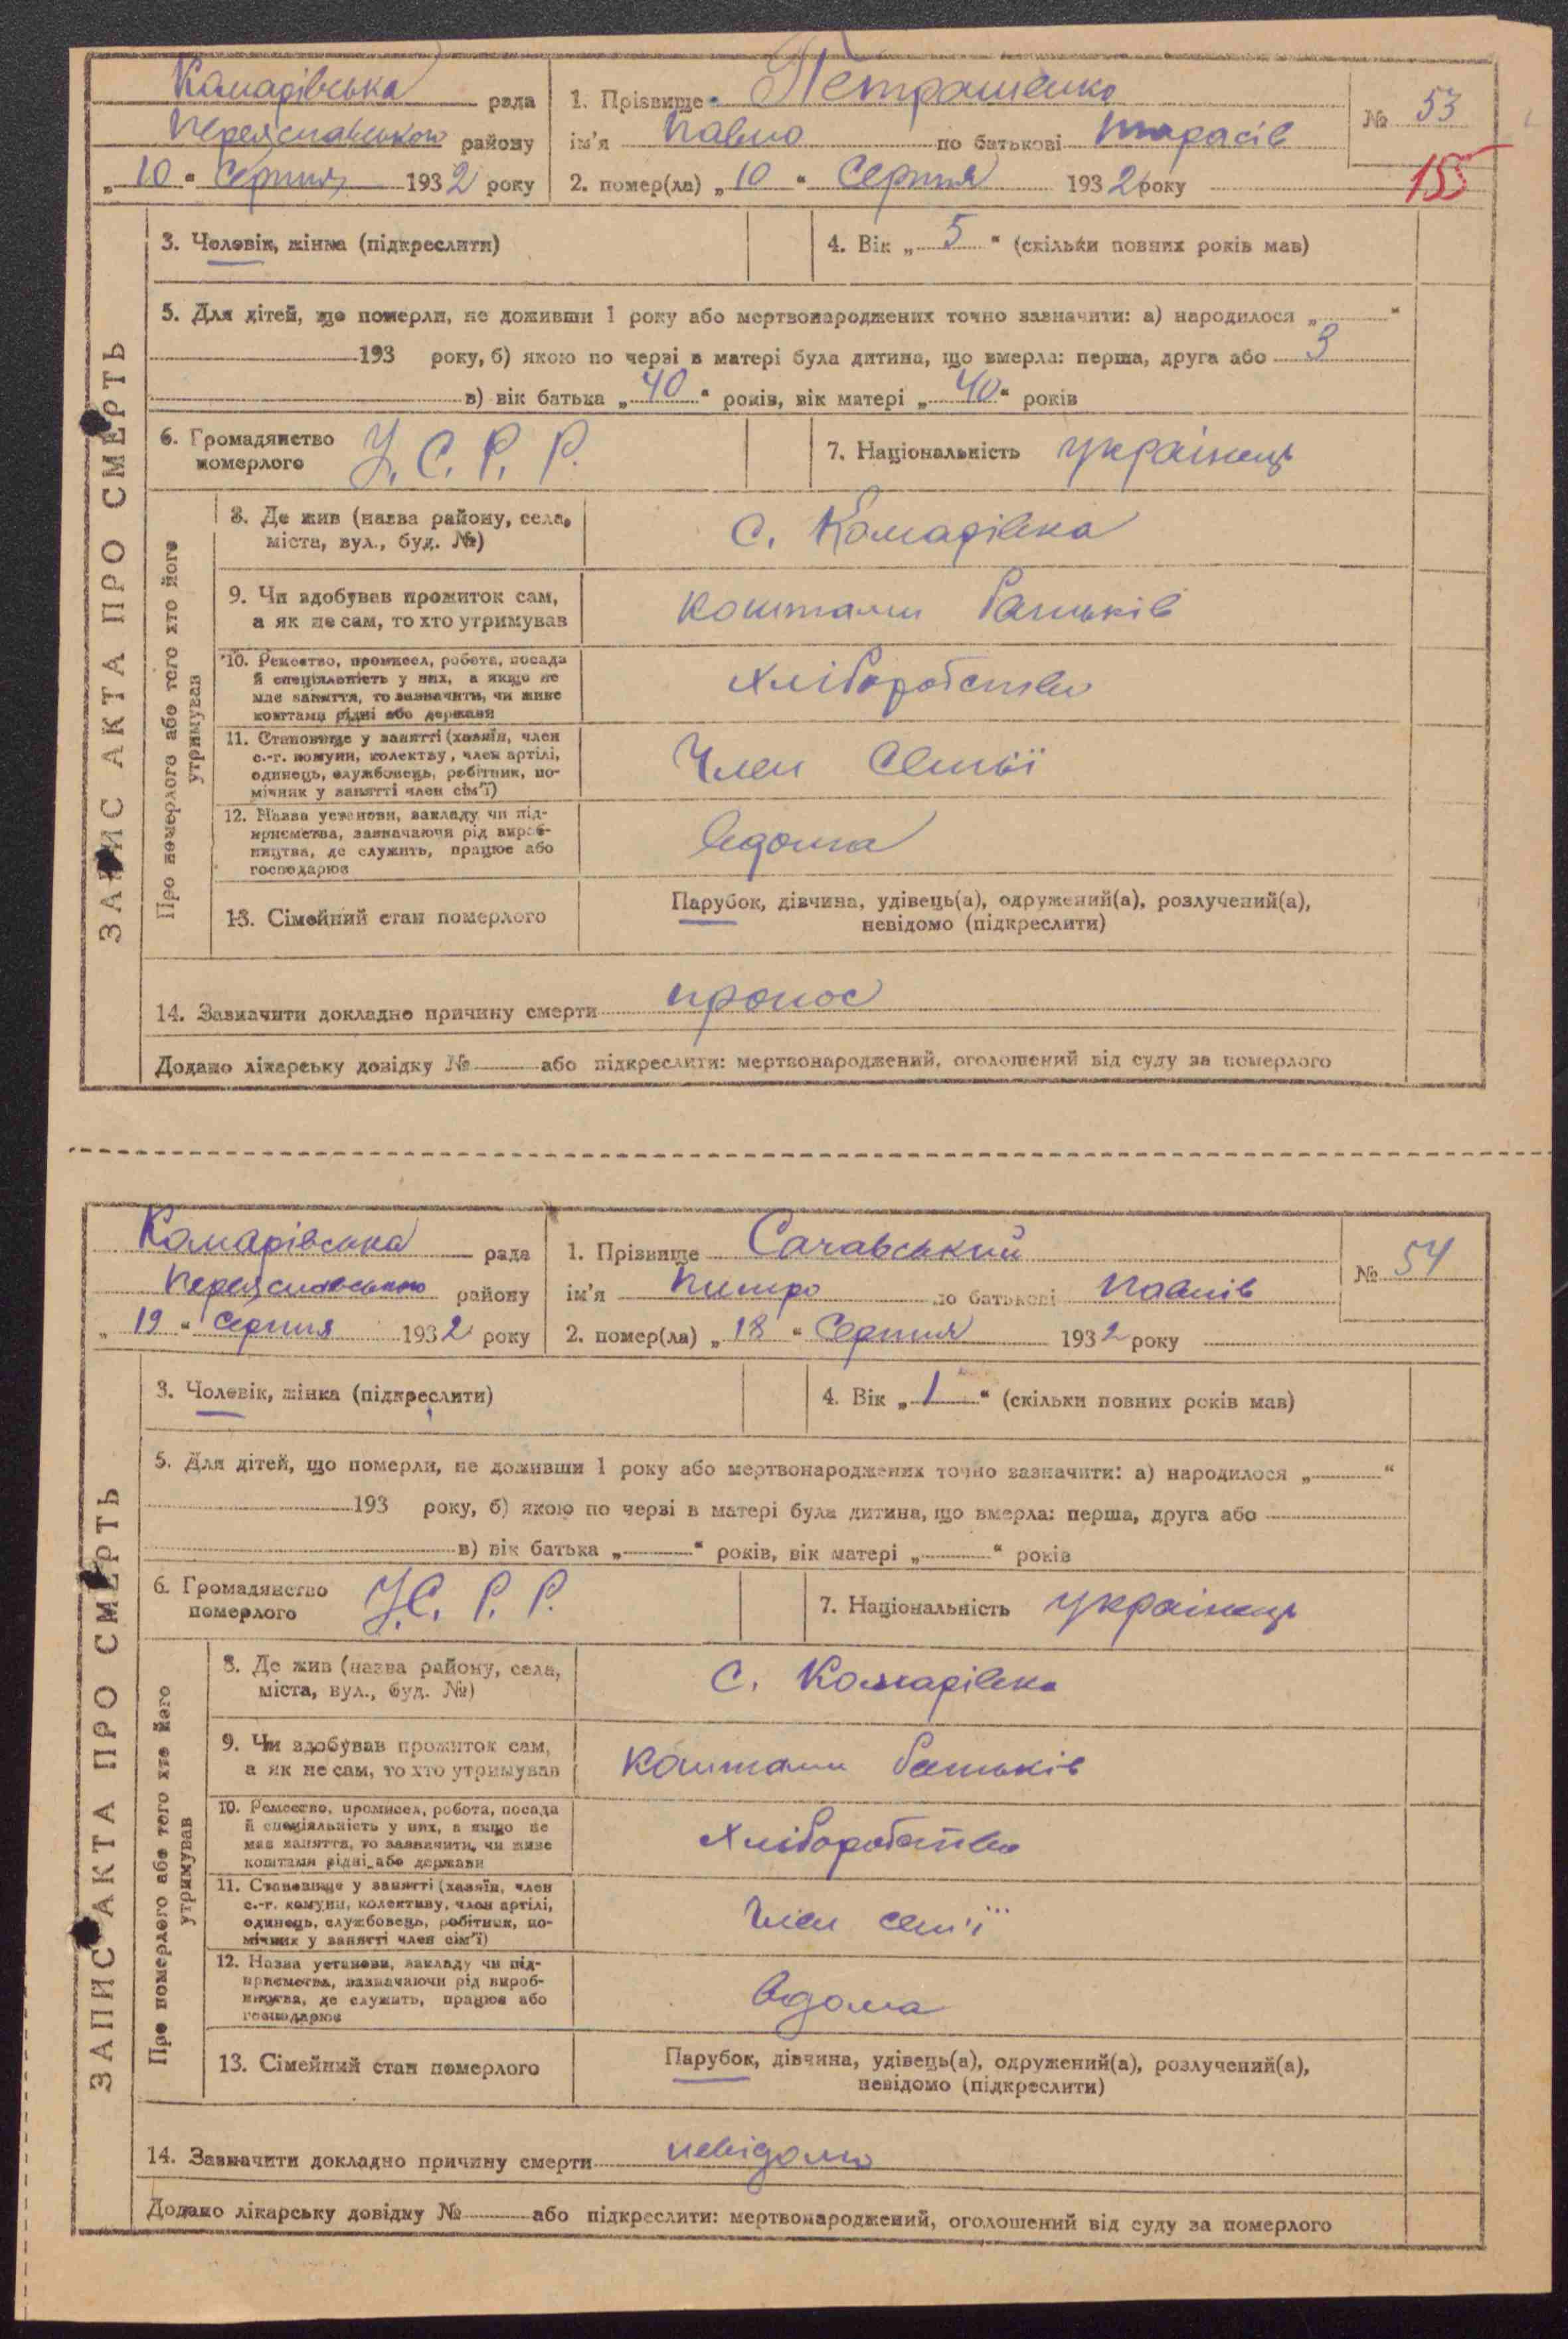 ЗАПИС АКТА ПРО СМЕРТЬ
Комарівська рада
Переяславського району
„10“ Серпня 1932 року
1. Прізвище Петрашенко
ім'я Павло по батькові Тарасів
2. помер(ла) „10“ Серпня 1932 року
№ 53
155
3. Чоловік, жінка (підкреслити)
4. Вік „5“ (скільки повних років мав)
5. Для дітей, що померли, не доживши 1 року або мертвонароджених точно зазначити: а) народилося „ “
193 року, б) якою по черзі в матері була дитина, що вмерла: перша, друга або 3
в) вік батька „40“ років, вік матері „40“ років
6. Громадянство
померлого
У.С.Р.Р.
7. Національність українець
Про померлого або того хто його
утримував
8. Де жив (назва району, села,
міста, вул., буд. №)
с. Комарівка
9. Чи здобував прожиток сам,
а як не сам, то хто утримував
коштами батьків
10. Ремество, промисел, робота, посада
й спеціяльність у них, а якщо не
має заняття, то зазначити, чи живе
коштами рідні або держави
хліборобство
11. Становище у занятті (хазяїн, член
с.-г. комуни, колективу, член артілі,
одинець, службовець, робітник, по-
мічник у занятті член сім'ї)
Член семьї
12. Назва установи, закладу чи під-
приємства, зазначаючи рід вироб-
ництва, де служить, працює або
господарює
вдома
13. Сімейний стан померлого
Парубок, дівчина, удівець(а), одружений(а), розлучений(а),
невідомо (підкреслити)
14. Зазначити докладно причину смерти понос
Додано лікарську довідку № або підкреслити: мертвонароджений, оголошений від суду за померлого
ЗАПИС АКТА ПРО СМЕРТЬ
Комарівська рада
Переяславського району
„19“ Серпня 1932 року
1. Прізвище Сачавський
ім'я Питро по батькові Павлів
2. помер(ла) „18“ Серпня 1932 року
№ 54
3. Чоловік, жінка (підкреслити)
4. Вік „1“ (скільки повних років мав)
5. Для дітей, що померли, не доживши 1 року або мертвонароджених точно зазначити: а) народилося „ “
193 року, б) якою по черзі в матері була дитина, що вмерла: перша, друга або
в) вік батька „ “ років, вік матері „ “ років
6. Громадянство
померлого
У.С.Р.Р.
7. Національність українець
Про померлого або того хто його
утримував
8. Де жив (назва району, села,
міста, вул., буд. №)
с. Комарівка
9. Чи здобував прожиток сам,
а як не сам, то хто утримував
коштами батьків
10. Ремество, промисел, робота, посада
й спеціяльність у них, а якщо не
має заняття, то зазначити, чи живе
коштами рідні або держави
хліборобство
11. Становище у занятті (хазяїн, член
с.-г. комуни, колективу, член артілі,
одинець, службовець, робітник, по-
мічник у занятті член сім'ї)
Член сем'ї
12. Назва установи, закладу чи під-
приємства, зазначаючи рід вироб-
ництва, де служить, працює або
господарює
вдома
13. Сімейний стан померлого
Парубок, дівчина, удівець(а), одружений(а), розлучений(а),
невідомо (підкреслити)
14. Зазначити докладно причину смерти невідомо
Додано лікарську довідку № або підкреслити: мертвонароджений, оголошений від суду за померлого